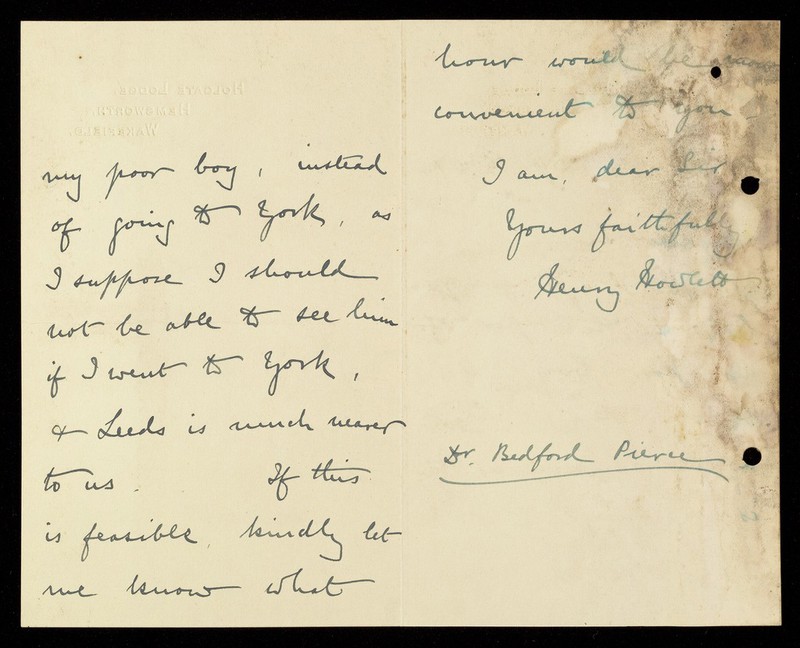 HOLGATE LODGE,
HEMSWORTH,
WAKEFIELD.
my poor boy, instead
of going to York, as
I suppose I should
not be able to see him
if I went to York,
& Leeds is much nearer
to us. If this
is feasible, kindly let
me know what
hour would be
convenient to you
I am, dear Sir
Yours faithfully
Henry Howlett
Dr. Bedford Pierce